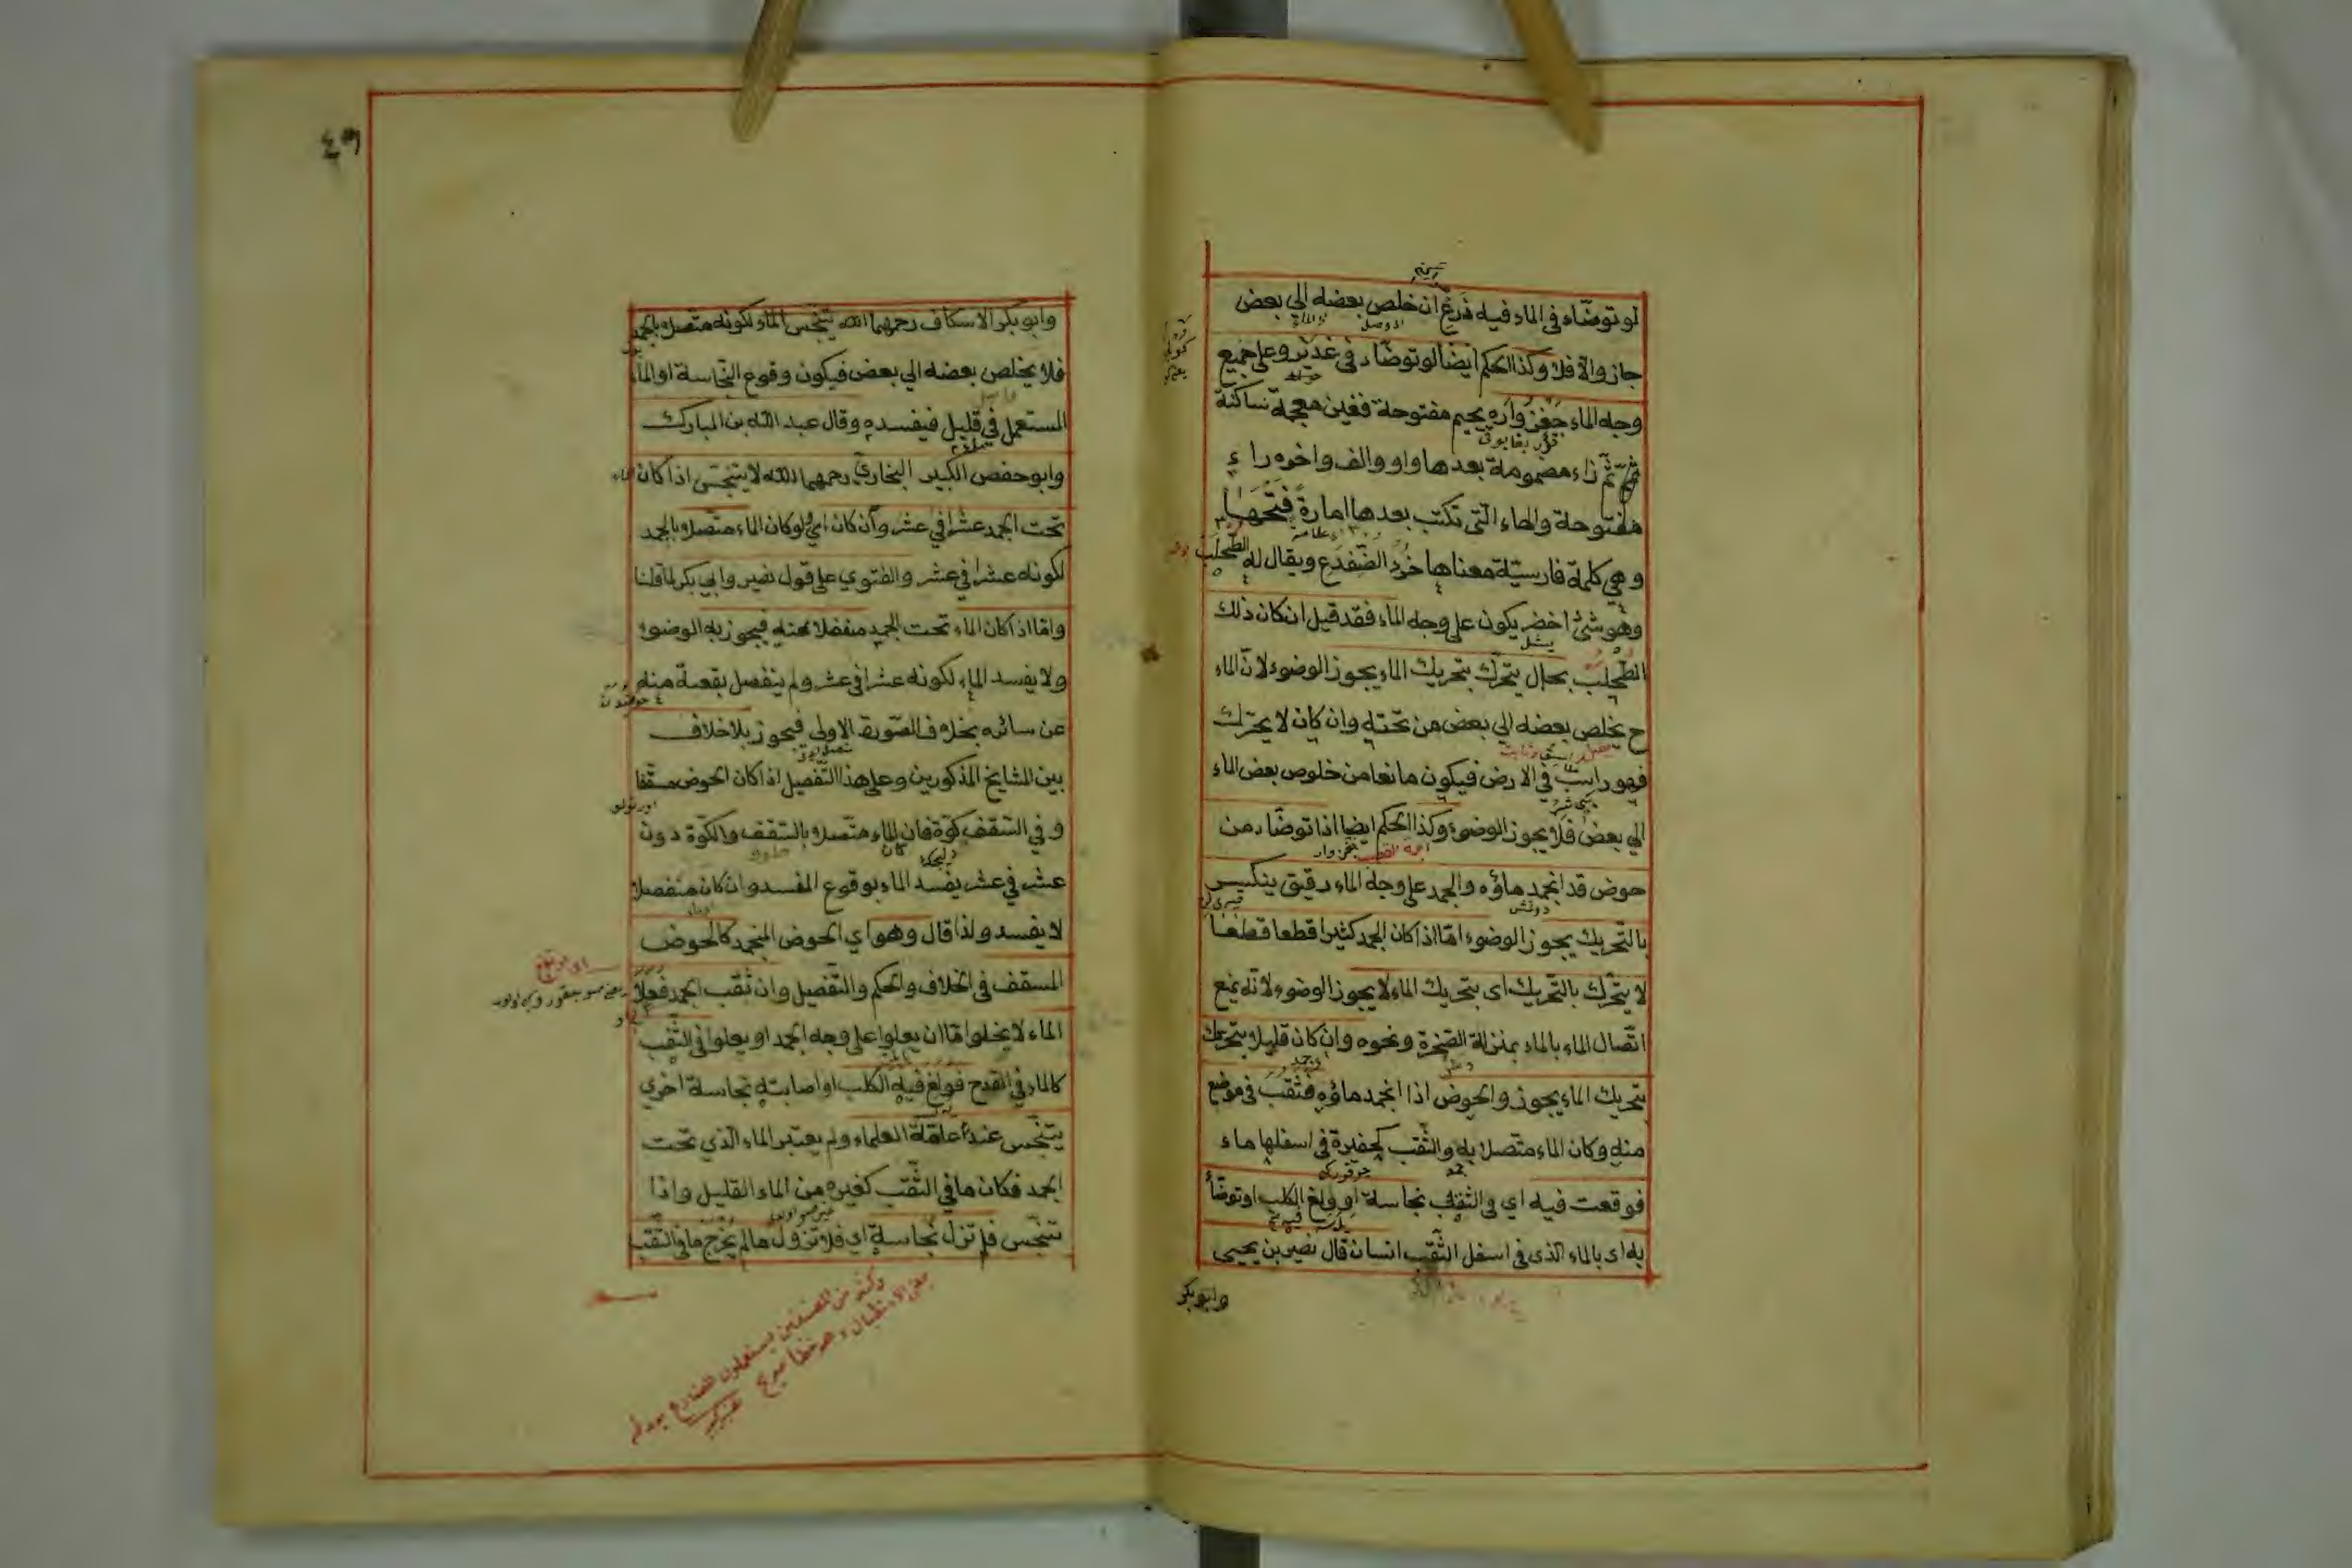 لو توضّاء في الماء فيه ذرع ان خلص بعضه الي بعض
جاز والّا فلا وكذا الحكم ايضا لو توضّاء في غدير وعلى جميع
وجه الماء جغزواره بجيم مفتوحة فغين معجمة ساكنة
ثمّ زاء مضمومة بعدها واو والف واخره راء
مفتوحة والهاء الّتي تكتب بعدها امارة فتحها
وهي كلمة فارسيّة معناها خرء الضّفدع ويقال له الطّحلب
وهو شئ اخضر يكون على وجه الماء فقد قيل ان كان ذلك
الطّحلب بحال يتحرّك بتحريك الماء يجوز الوضوء لانّ الماء
ح يخلص بعضه الي بعض من تحته وان كان لا يتحرّك
فهو راسب في الارض فيكون مانعا من خلوص بعض الماء
الي بعض فلا يجوز الوضوء وكذا الحكم ايضا اذا توضّاء من
حوض قد انجمد ماؤه والجمد على وجه الماء رقيق ينكسر
بالتحريك يجوز الوضوء امّا اذا كان الجمد كثيرا قطعا قطعا
لا يتحرّك بالتّحريك اى بتحريك الماء لا يجوز الوضوء لانّه يمنع
اتّصال الماء بالماء بمنزلة الصّخرة ونحوه وان كان قليلا يتحرك
بتحريك الماء يجوز والحوض اذا انجمد ماؤه فثقب في موضع
منه وكان الماء متّصلا به والثّقب كحفيرة في اسفلها ماء
فوقعت فيه اي في الثّقب نجاسة او ولغ الكلب او توضّأ
به اى بالماء الذى في اسفل الثّقب انسان قال نصير بن يحيى
وابوبكر
٤٩
وابو بكر الاسكاف رحمهما الله يتنجّس الماء لكونه متّصلا بالجمد
فلا يخلص بعضه الي بعض فيكون وقوع النّجاسة او الماء
المستعمل في قليل فيفسده وقال عبد الله بن المبارك
وابو حفص الكبير البخاريّ رحمهما الله لا يتنجّس اذا كان الماء
تحت الجمد عشرا في عشر وان كان اي لو كان الماء متّصلا بالجمد
لكونه عشرا في عشر والفتوي على قول نصير وابي بكر لما قلنا
وامّا اذا كان الماء تحت الجمد منفصلا عنه فيجوز به الوضوء
ولا يفسد الماء لكونه عشرا في عشر ولم ينفصل بقعة منه
عن سائره بخلاف الصّورة الاولى فيجوز بلا خلاف
بين المشايخ المذكورين وعلى هذا التّفصيل اذا كان الحوض مسقّفا
و في السّقف كوّة فان كان الماء متّصلا بالسّقف والكوّة دون
عشر في عشر يفسد الماء بوقوع المفسد وان كان منفصلا
لا يفسد ولذا قال وهو اي الحوض المنجمد كالحوض
المسقف في الخلاف والحكم والتّفصيل وان ثقب الجمد فعلا
الماء لا يخلو امّا ان يعلوا على وجه الجمد او يعلوا في الثّقب
كالماء في القدح فولغ فيه الكلب او اصابته نجاسة اخري
يتنجّس عند عامّة العلماء ولم يعتبر الماء الّذي تحت
الجمد فكان ما في الثّقب كغيره من الماء القليل واذا
تنجّس فلم تزل نجاسة اي فلا تزول ما لم يخرج ما في الثّقب
وكثير من المصنفين يستعملون المضارع بعد لم